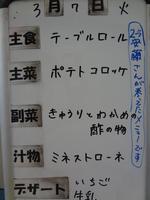 3月7日火
主食 テーブルロール
主菜 ポテトコロッケ
副菜 きゅうりとわかめの
酢の物
汁物 ミネストローネ
デザート いちご
牛乳
さんが考えたメニューです